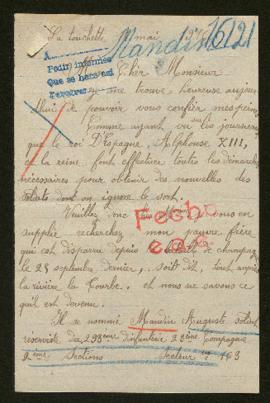 La Louchette mai 1916
Mandin 16121
A
Pedir informes
Que se hara así
Cher Monsieur
je me trouve heureuse aujour
d'hui de pouvoir vous confier mes peines
Comme ayant vu sur les journeaux
que le roi D'Espagne, Alphonse XIII,
et la reine, font effectuer toute les démarches
nécessaires pour obtenir des nouvelles des
soldats dont on ignore le sort.
Veuillez donc vous en
supplie recherchez mon pauvre frère
qui est disparue depuis de champagne
le 25 septembre dernier, soit dit,
la rivière la Tourbe. et nous ne savons ce
qu'il est devenu.
Fecho
Il se nommé Mandin Auguste soldat
réserviste du 293eme d'infanterie 23eme Compagnie
2eme Sections Secteur no 163